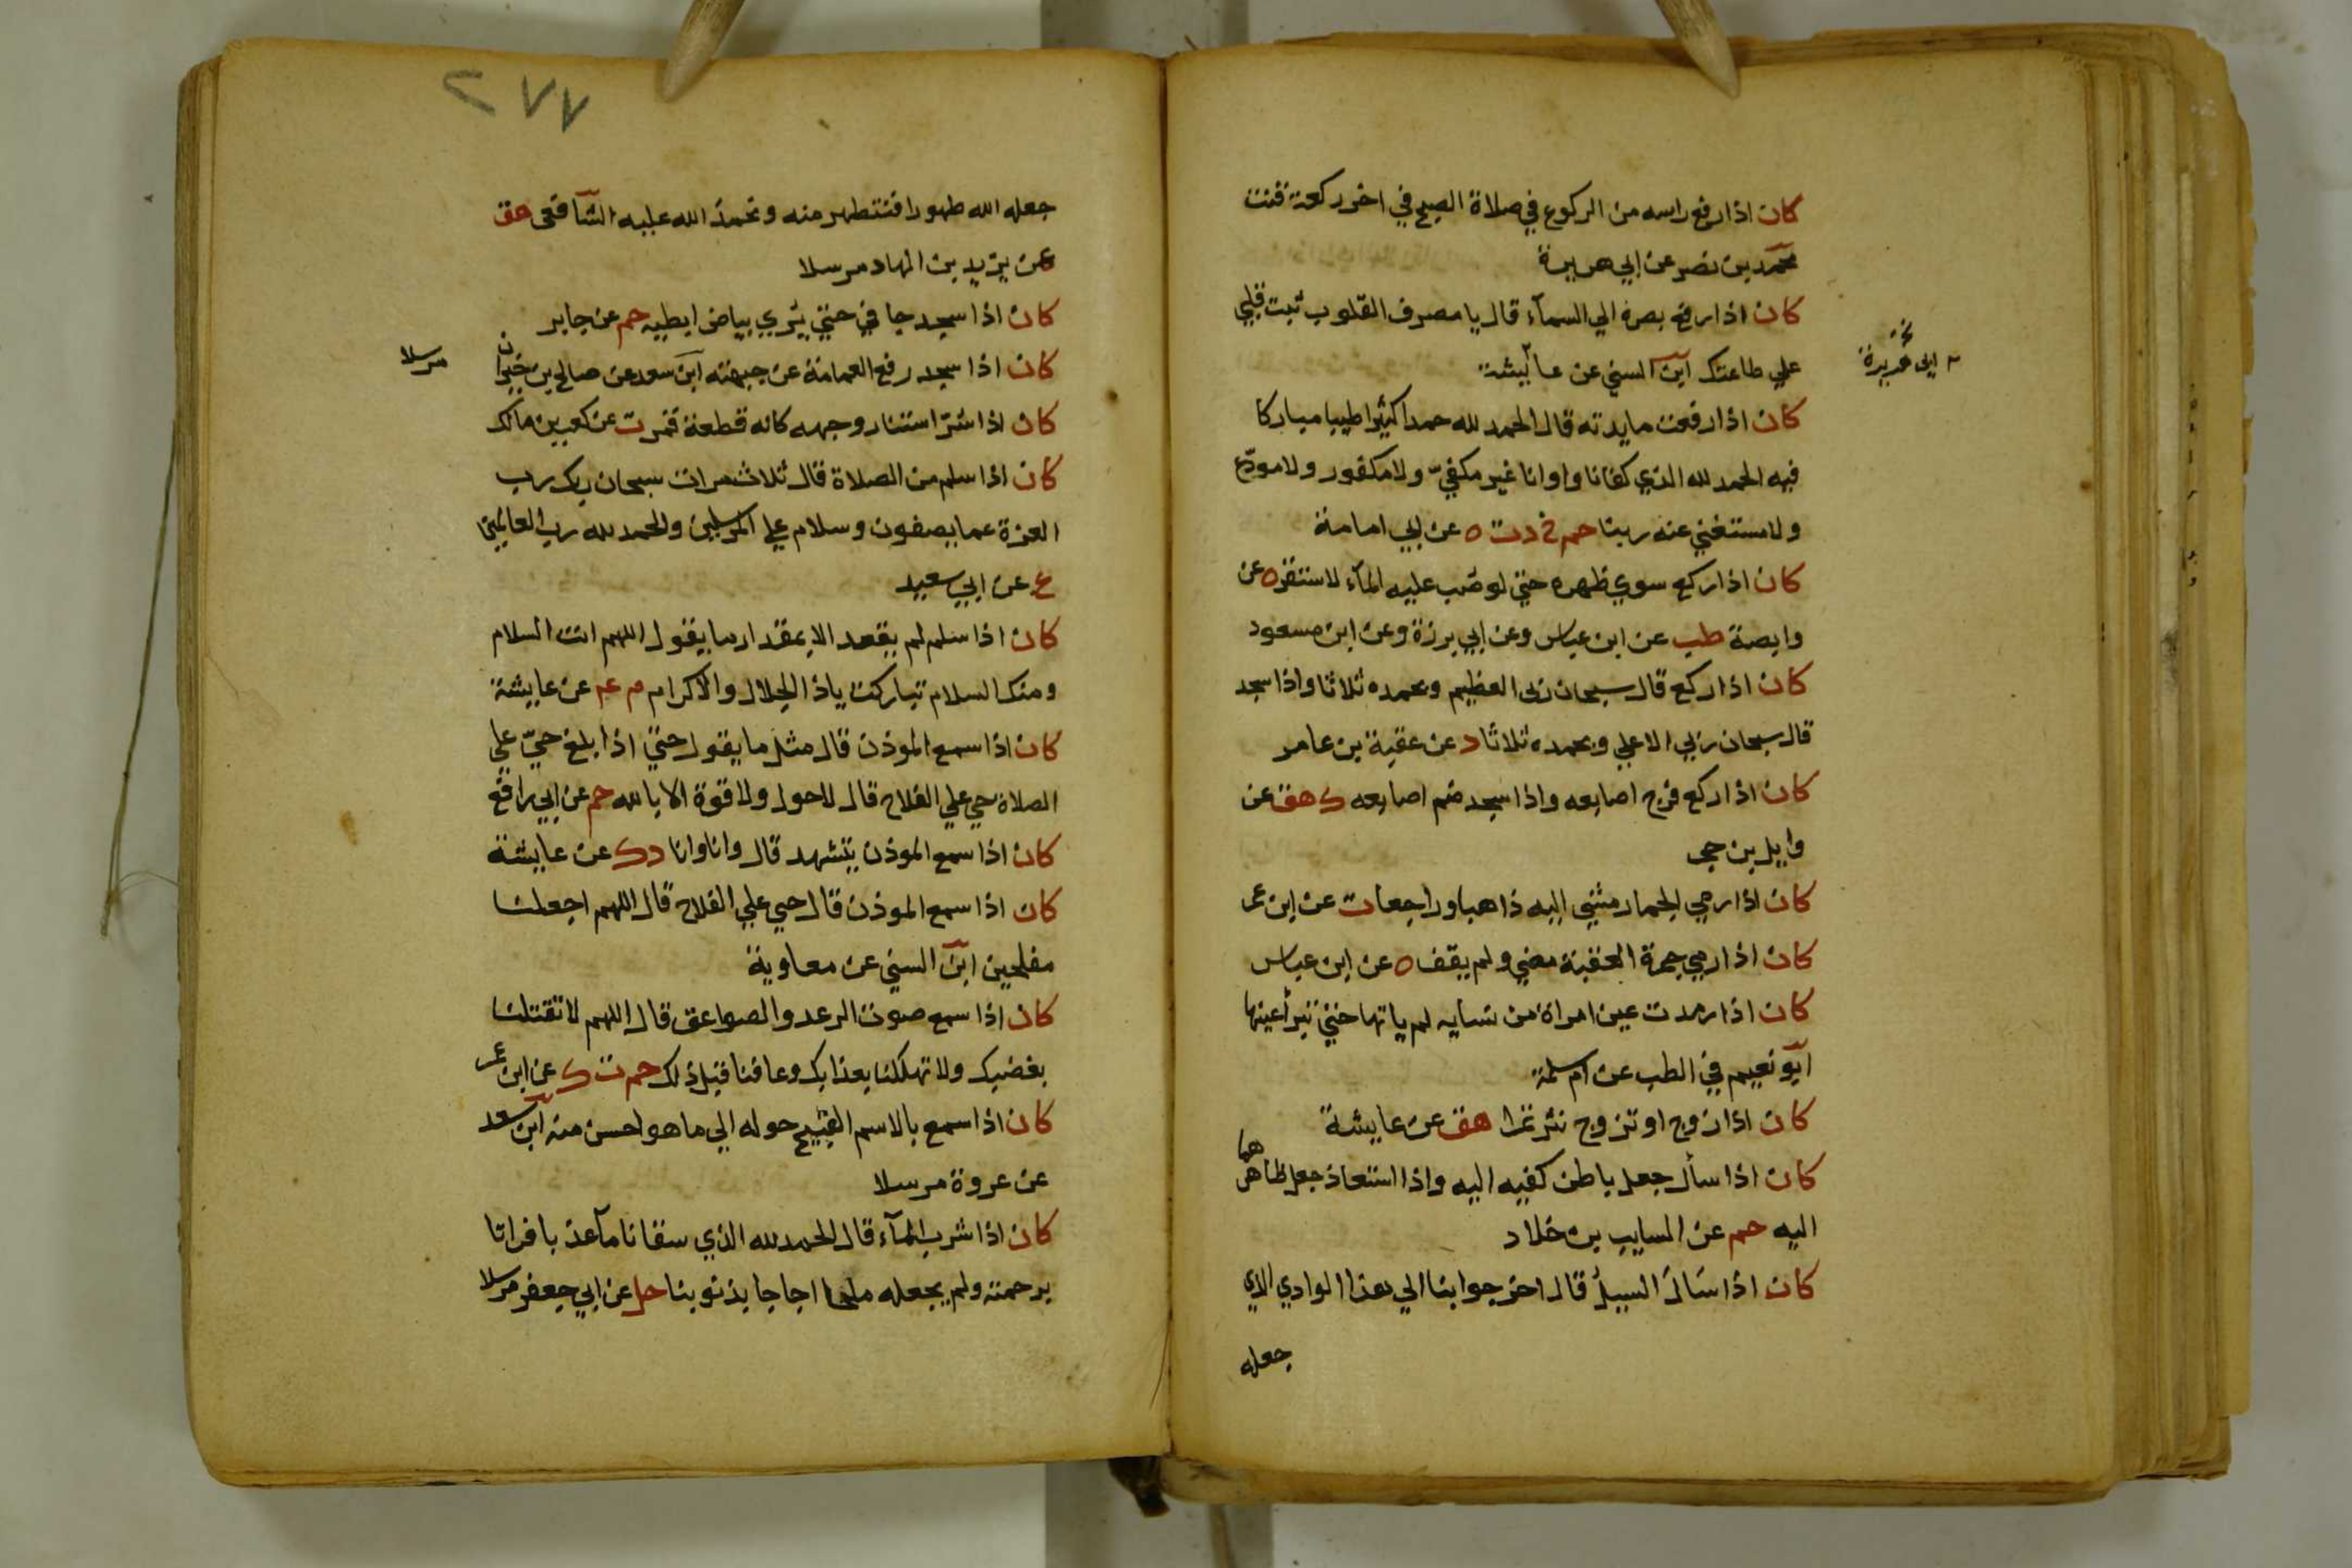 كان اذا رفع راسه من الركوع في صلاة الصبح في اخر ركعة قنت
محمد بن نصر عن ابي هريرة
كان اذا رفع بصره الي السمآء قال يا مصرف القلوب ثبت قلبي
علي طاعتك ابن السني عن عائيشة
كان اذا رفعت مايدته قال الحمد لله حمدا كثيرا طيبا مباركا
فيه الحمد لله الذي كفانا واوانا غير مكفيّ ولا مكفور ولا مودّع
ولا مستغني عنه ربنا حم خ د ت ه عن ابي امامة
كان اذا ركع سوي ظهره حتي لو صب عليه المآء لاستقر ه عن
وابصة طب عن ابن عباس وعن ابي برزة وعن ابن مسعود
كان اذا ركع قال سبحان ربي العظيم وبحمده ثلاثا واذا سجد
قال سبحان ربي الاعلي وبحمده ثلاثا د عن عقبة بن عامر
كان اذا ركع فرج اصابعه واذا سجد ضم اصابعه ك هق عن
وايل بن حجر
كان اذا رمي الجمار مشي اليه ذاهبا وراجعا ت عن ابن عمر
كان اذا رمي جمرة العقبة مضي ولم يقف ه عن ابن عباس
كان اذا رمدت عين امراة من نسايه لم ياتها حتي تبرأ عينها
ابو نعيم في الطب عن ام سلمة
كان اذا زوج او تزوج نثر تمرا هق عن عايشة
كان اذا سأل جعل باطن كفيه اليه واذا استعاذ جعل ظاهرهما
اليه حم عن السايب بن خلاد
كان اذا سَالَ السيلُ قال اخرجوا بنا الي هذا الوادي الذي
جعله
ابي هريرة
٢٧٧
جعله الله طهورا فنتطهر منه ونحمدَ الله عليه الشافعي هق
عن يزيد بن الهاد مرسلا
كان اذا سجد جافي حتي يُري بياض ابطيه حم عن جابر
كان اذا سجد رفع العمامة عن جبهته ابن سعد عن صالح بن خيران
مرسلا
كان اذا سُرّ استنار وجهه كانه قطعة قمر ت عن كعب بن مالك
كان اذا سلم من الصلاة قال ثلاث مرات سبحان ربك رب
العزة عما يصفون وسلام علي المرسلين والحمد لله رب العالمين
ع عن ابي سعيد
كان اذا سلم لم يقعد الا بمقدار ما يقول اللهم انت السلام
ومنك السلام تباركت يا ذا الجلال والاكرام م عم عن عايشة
كان اذا سمع الموذن قال مثل ما يقول حتي اذا بلغ حيّ علي
الصلاة حي علي الفلاح قال لا حول ولا قوة الا بالله حم عن ابي رافع
كان اذا سمع الموذن يتشهد قال وانا وانا د ك عن عايشة
كان اذا سمع الموذن قال حي علي الفلاح قال اللهم اجعلنا
مفلحين ابن السني عن معاوية
كان اذا سمع صوت الرعد والصواعق قال اللهم لا تقتلنا
بغضبك ولا تهلكنا بعذابك وعافنا قبل ذلك حم ت ك عن ابن عمر
كان اذا سمع بالاسم القبيح حوله الي ما هو احسن منه ابن سعد
عن عروة مرسلا
كان اذا شرب المآء قال الحمد لله الذي سقانا مآ عذبا فراتا
برحمته ولم يجعله ملحا اجاجا بذنوبنا حل عن ابي جعفر مرسلا